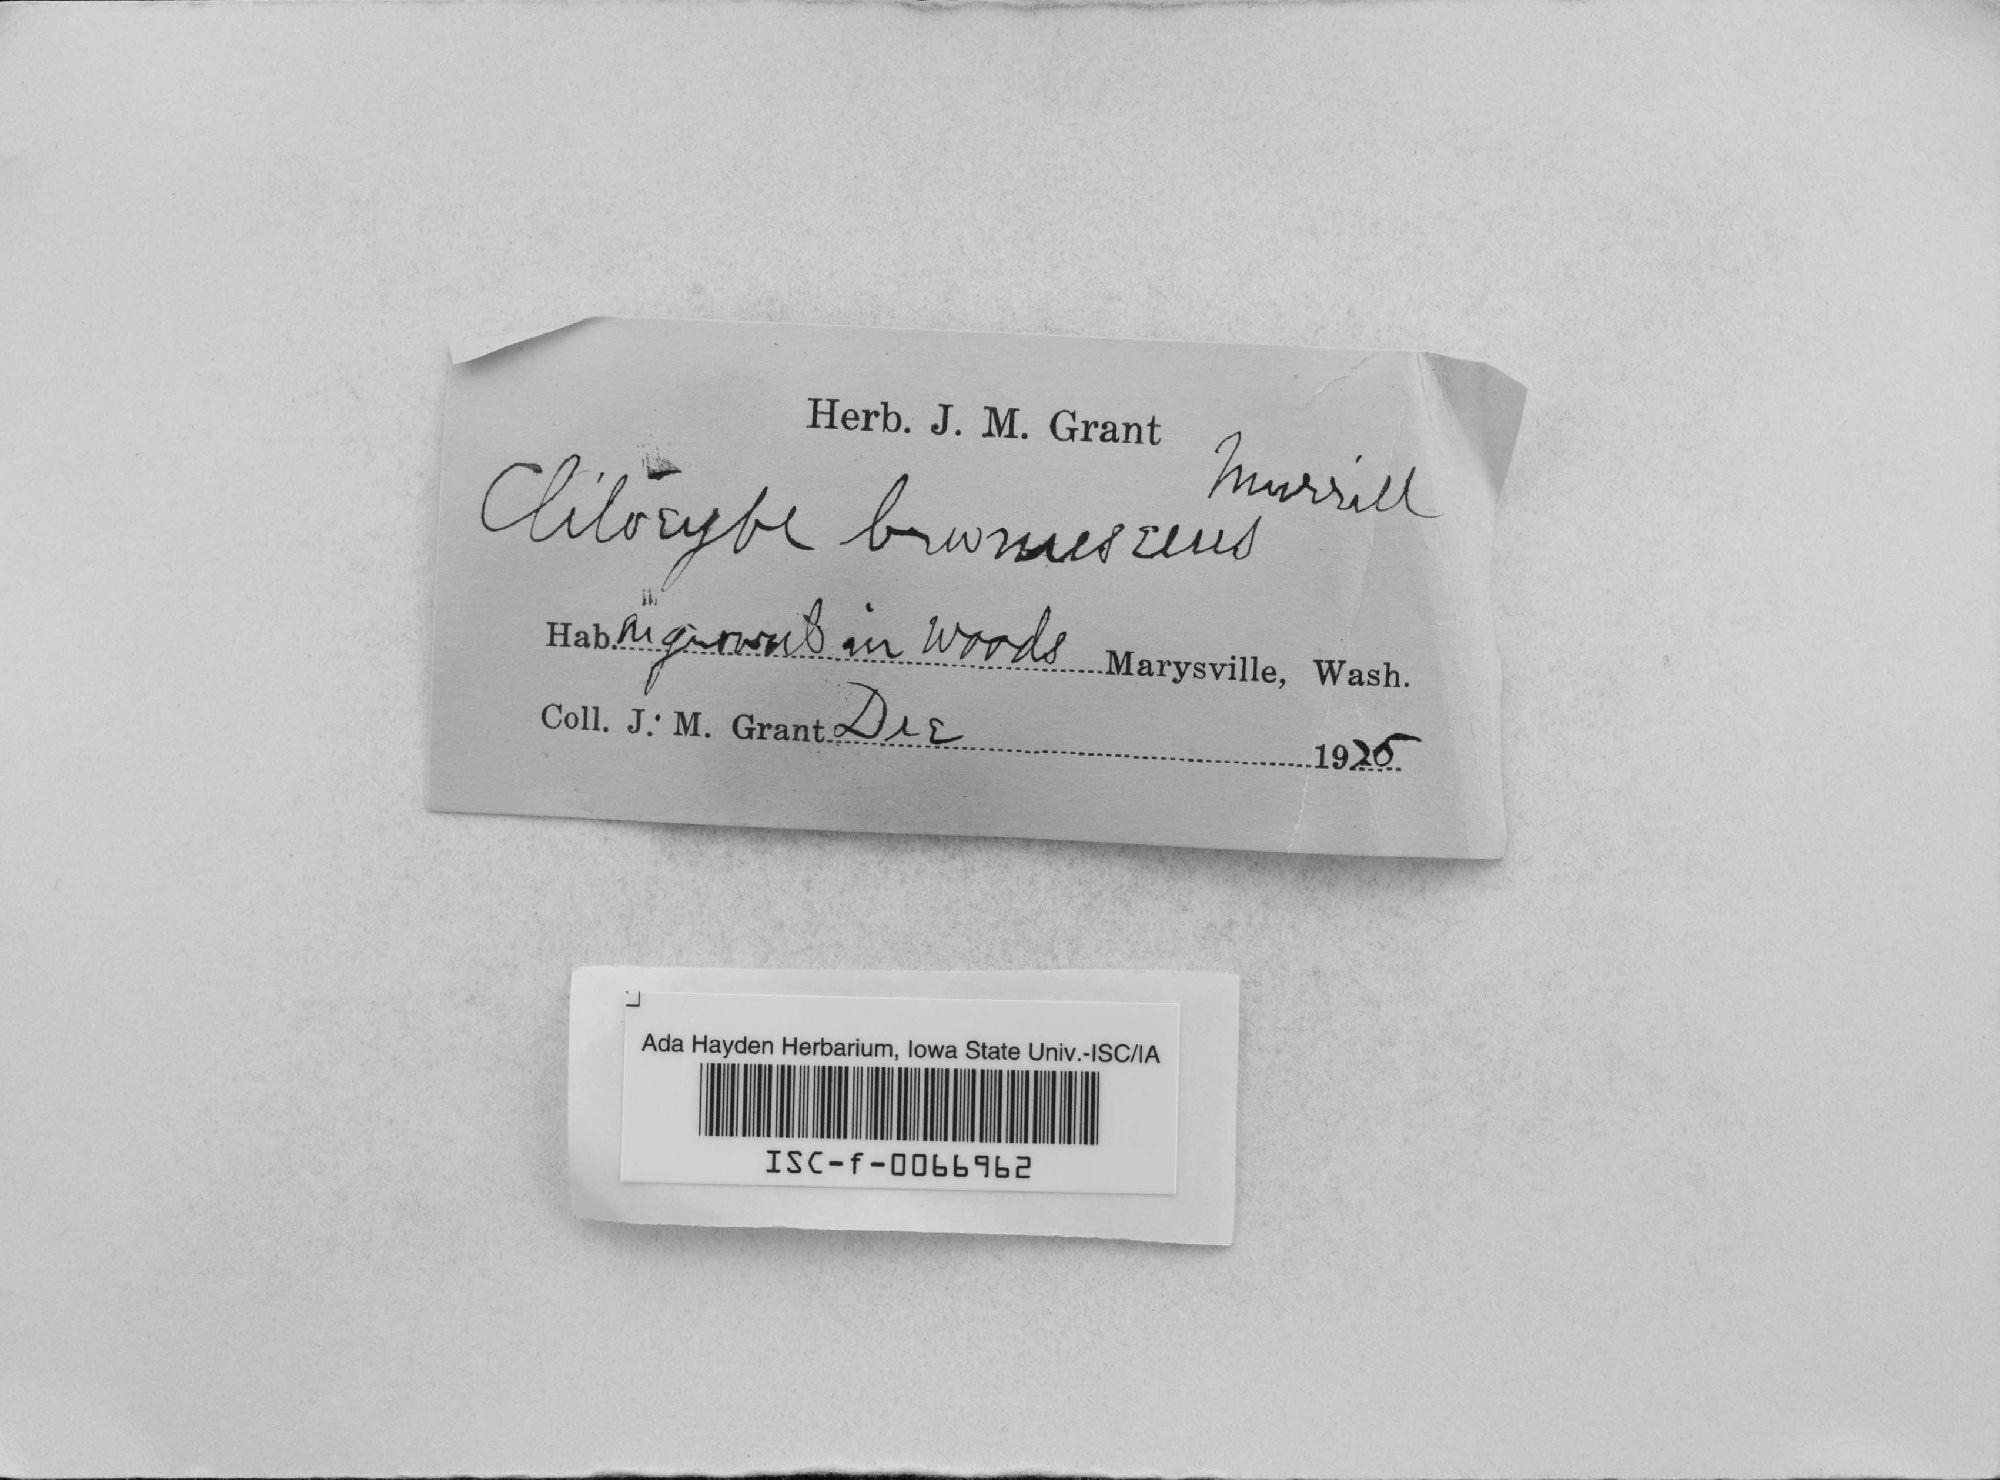 Herb. J. M. Grant
Murrill
Clitocybe brunnescens
Hab. ground in woods Marysville, Wash.
Coll. J. M. Grant Dec 1925
Ada Hayden Herbarium, Iowa State Univ.-ISC/IA
ISC-f-0066962